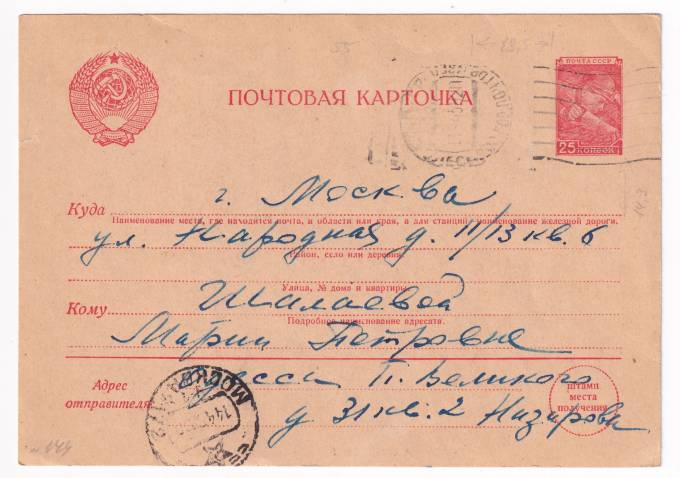 ПОЧТА СССР
25 КОПЕЕК
ПОЧТОВАЯ КАРТОЧКА
Куда г. Москва
Наименование места, где находится почта, и области или края, а для станций наименование железной дороги.
ул. Народная д. 11/13 кв. 6
Район, село или деревня
Улица, № дома и квартиры
Кому Шалаевой
Подробное наименование адресата.
Марии Петровне
Адрес отправителя Одесса П. Великого
д 31 кв. 2 Низирови
штамп места получения
МОСКВА